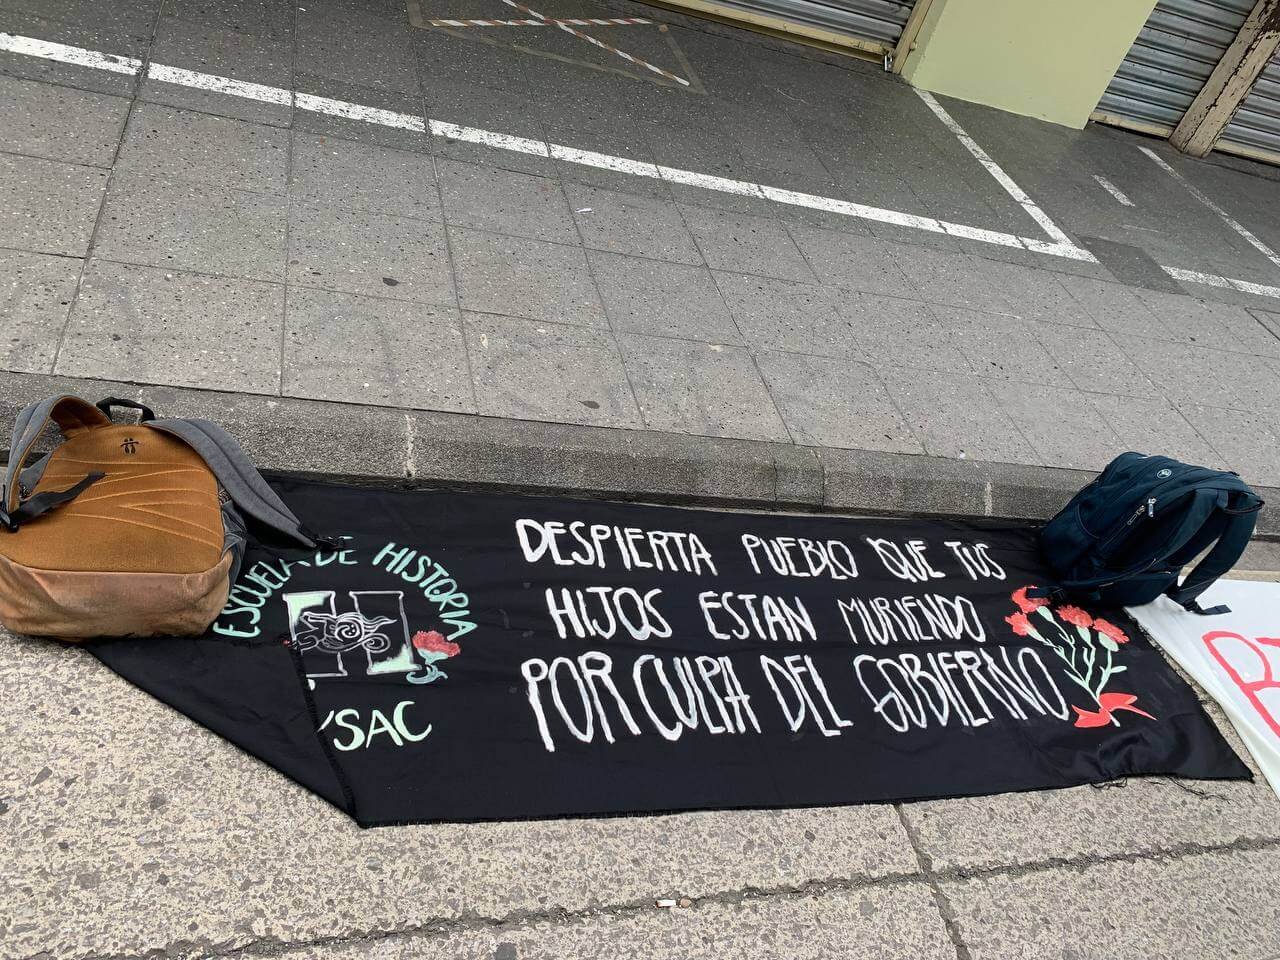 ESCUELA DE HISTORIA
USAC
DESPIERTA PUEBLO QUE TUS
HIJOS ESTAN MURIENDO
POR CULPA DEL GOBIERNO